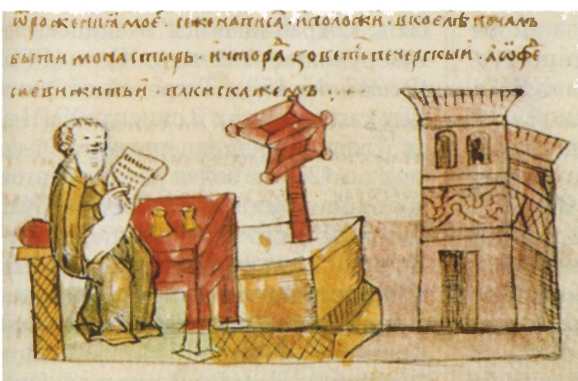 ѿроженїꙗ моеⷢ · сеженаписаⷯ · иположиⷯ · вкоелѣⷮ почалъ
быти монастырь · ичтораⷣ зоветьⷭ печерскыи · аѡфеⷣ
сиеви житьи паки скажемъ ·